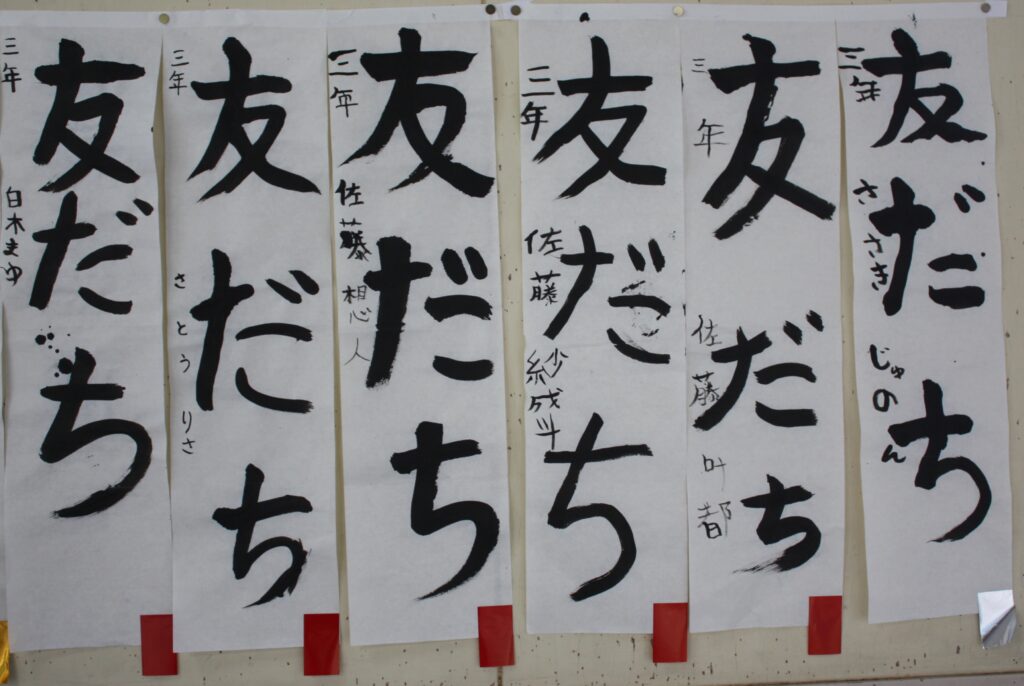 友だち
三年 ささき じゅのん
友だち
三年 佐藤 叶都
友だち
三年 佐藤 紗成斗
友だち
三年 佐藤 想人
友だち
三年 さとう りさ
友だち
三年 白木まゆ